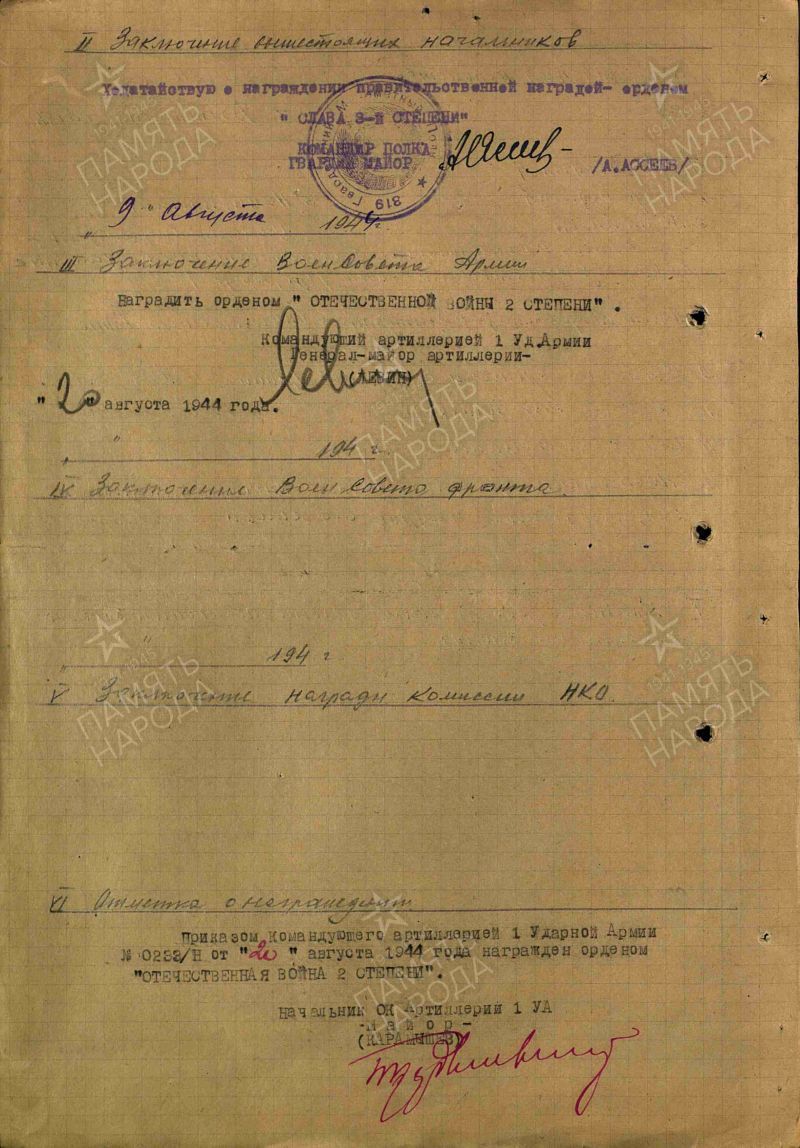 II Заключение вышестоящих начальников
Ходатайствую о награждении правительственной наградой- орденом
" СЛАВА 3-й СТЕПЕНИ"
КОМАНДИР ПОЛКА
ГВАРДИИ МАЙОР
/А.АССЕЕВ/
819 Гвард
"9" Августа 1944г
III Заключение ВоенСовета Армии
Наградить орденом " ОТЕЧЕСТВЕННОЙ ВОЙНЫ 2 СТЕПЕНИ" .
Командующий артиллерией 1 Уд.Армии
Генерал-майор артиллерии-
"20" августа 1944 года.
" " 194 г
IV Заключение ВоенСовета фронта.
" " 194 г
V Заключение наградн комиссии НКО.
VI Отметка о награждении
Приказом Командующего артиллерией 1 Ударной Армии
№ 0233/Н от "20 " августа 1944 года награжден орденом
"ОТЕЧЕСТВЕННАЯ ВОЙНА 2 СТЕПЕНИ".
Начальник ОК Артиллерии 1 УА
-майор-
(КАРАМЫШЕВ)
ПАМЯТЬ НАРОДА
1941-1945